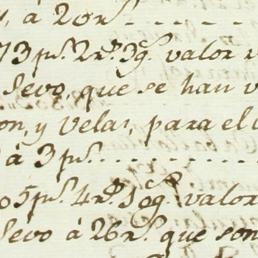 , à 20 rs. - - - - - - -
73 ps. 2 rs. 3 gs. valor
Sevo, que se han
on, y velas, para el
à 3 ps. - - - - - - - -
05 ps. 4 rs. 10 gs. valor
Sevo à 26 rs. que son